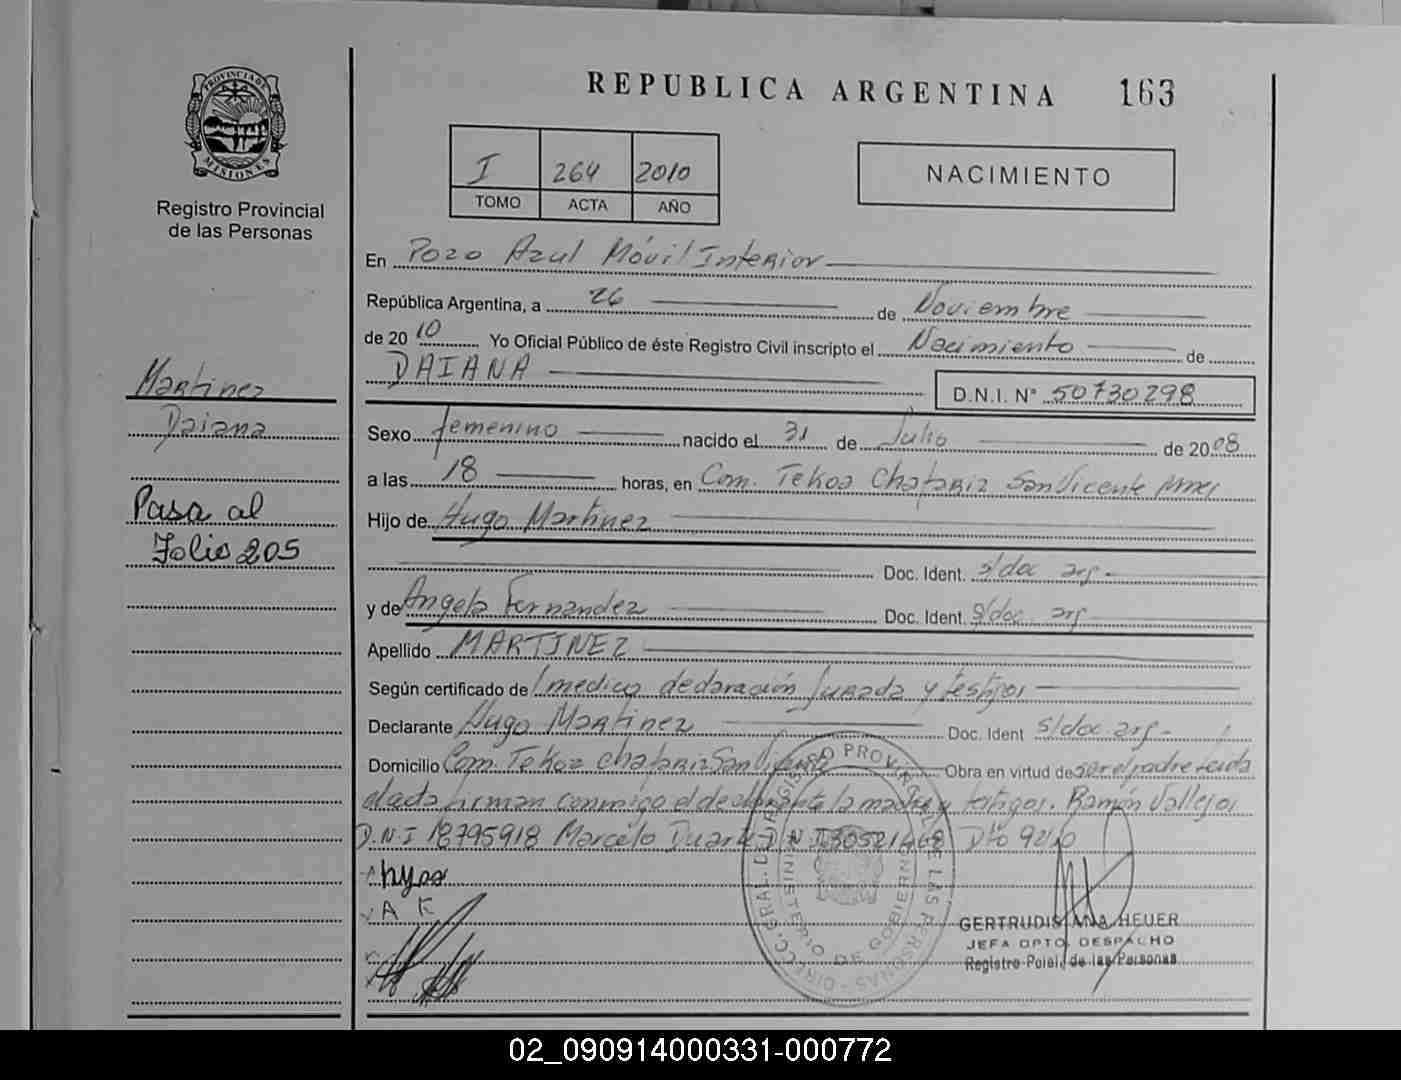 PROVINCIA DE
MISIONES
Registro Provincial
de las Personas
Martinez
Daiana
Pasa al
Folio 205
REPUBLICA ARGENTINA 163
I 264 2010
TOMO ACTA AÑO
NACIMIENTO
En Pozo Azul Móvil Interior
República Argentina, a 26 de Noviembre
de 2010 Yo Oficial Público de éste Registro Civil inscripto el Nacimiento de
DAIANA
D.N.I. N° 50730298
Sexo femenino nacido el 31 de Julio de 2008
a las 18 horas, en Com. Tekoa Chafariz San Vicente
Hijo de Hugo Martinez
Doc. Ident. s/doc arg
y de Angela Fernandez Doc. Ident. s/doc. arg
Apellido MARTINEZ
Según certificado de medico declaración Jurada y testigos
Declarante Hugo Martinez Doc. Ident s/doc. arg
Domicilio Com. Tekoa Chafariz San Vicente Obra en virtud de ser el padre Leida
el acta firman conmigo el declarante la madre y testigos. Ramón Vallejos
D.N.I 18795918 Marcelo Duarte D N I 30521468 Dto 92/10
A K
GERTRUDIS ANA HEUER
JEFA DPTO. DESPACHO
Registro Pcial. de las Personas
DIREC. GRAL. DEL REGISTRO PROVINCIAL DE LAS PERSONAS
MINISTERIO DE GOBIERNO
02_090914000331-000772